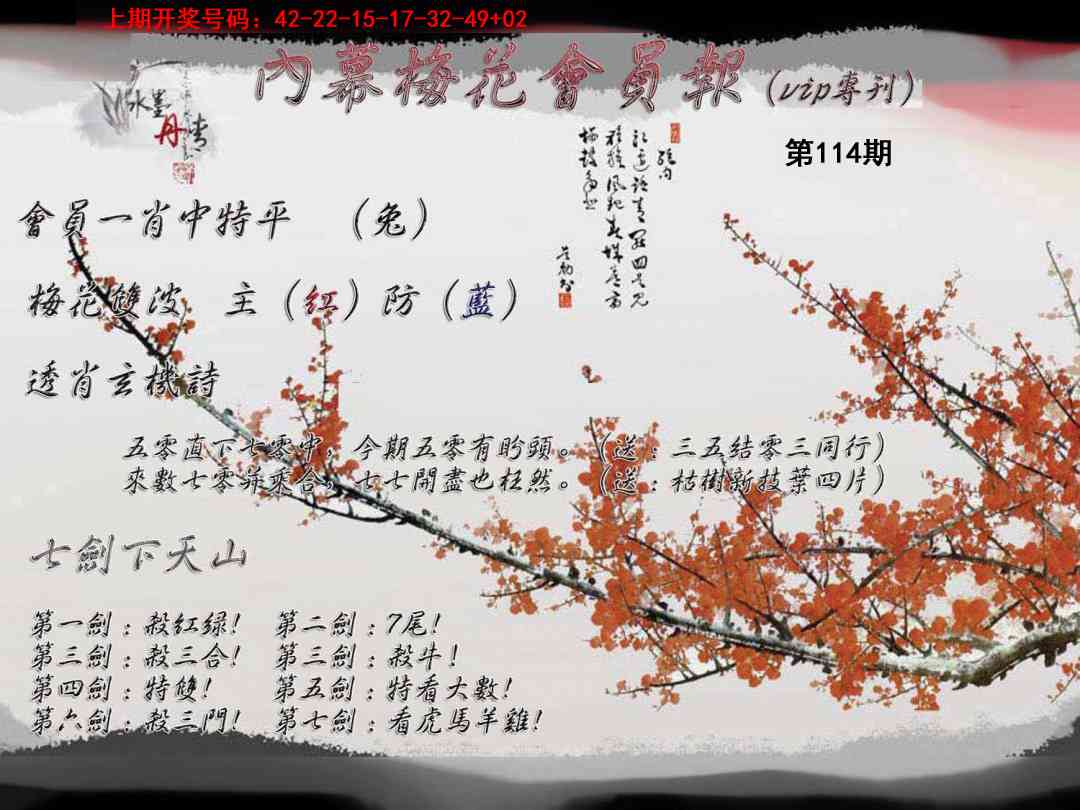 上期开奖号码：42-22-15-17-32-49+02
內幕梅花會員報（vip專刊）
水墨
丹青
第114期
會員一肖中特平 （兔）
梅花雙波 主（紅）防（藍）
透肖玄機詩
五零直下七零中，今期五零有盼頭。（送：三五结零三同行）
來數七零并乘合，七七開盡也枉然。（送：枯樹新技葉四片）
七劍下天山
第一劍：殺紅绿！ 第二劍：7尾！
第三劍：殺三合！ 第三劍：殺牛！
第四劍：特雙！ 第五劍：特看大數！
第六劍：殺三門！ 第七劍：看虎馬羊雞！